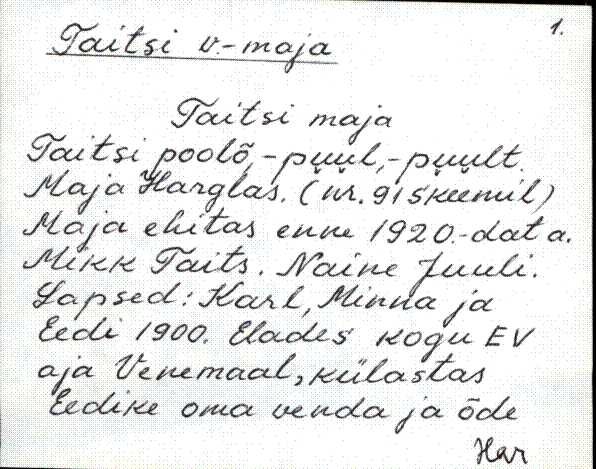 1.
Taitsi v.-maja
Taitsi maja
Taitsi poolõ, -puul, -puult.
Maja Harglas. (nr. 91 skeemil)
Maja ehitas enne 1920.-data.
Mikk Taits. Naine Juuli.
Lapsed: Karl, Minna ja
Eedi 1900. Elades kogu EV
aja Venemaal, külastas
Eedike oma venda ja õde
Har